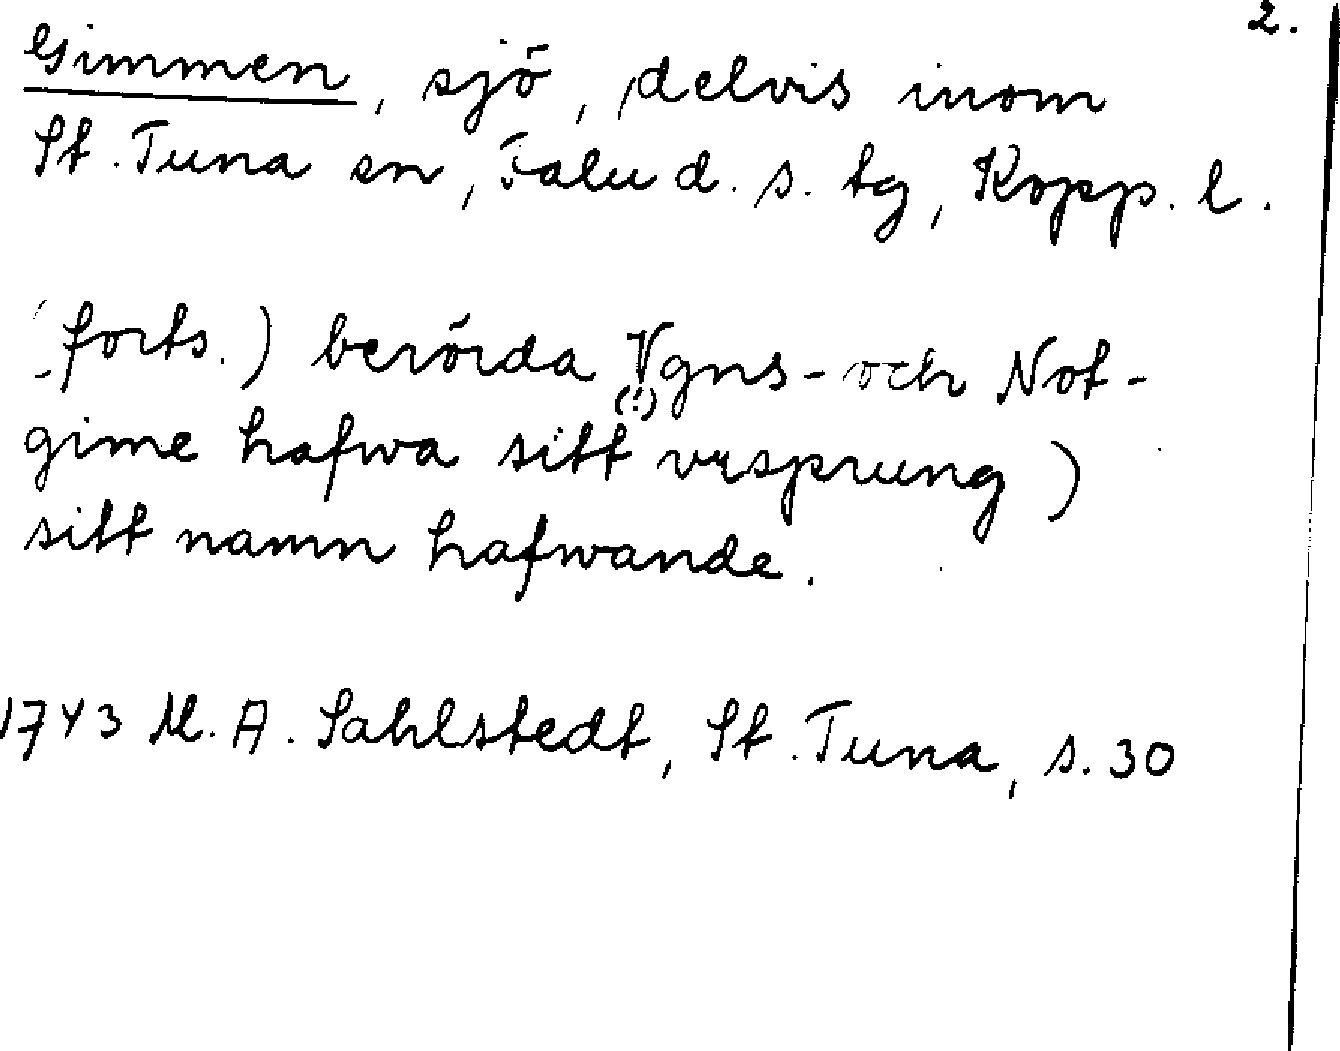 2.
Gimmen, sjö, delvis inom
St. Tuna sn, Falu d. s. tg, Kopp. l.
(forts.) berörda Vgns- och Not-
(!)
gime hafwa sitt vrsprung)
sitt namn hafwande.
1743 M. A. Sahlstedt, St. Tuna, s. 30